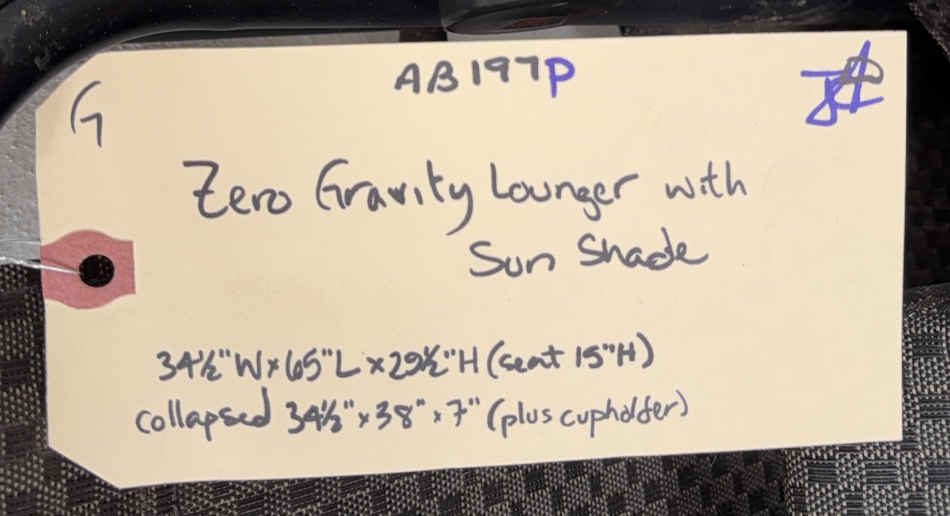 G
AB197P
Zero Gravity Lounger with
Sun Shade
34½"W x 65"L x 29½"H (seat 15"H)
collapsed 34½" x 38" x 7" (plus cupholder)